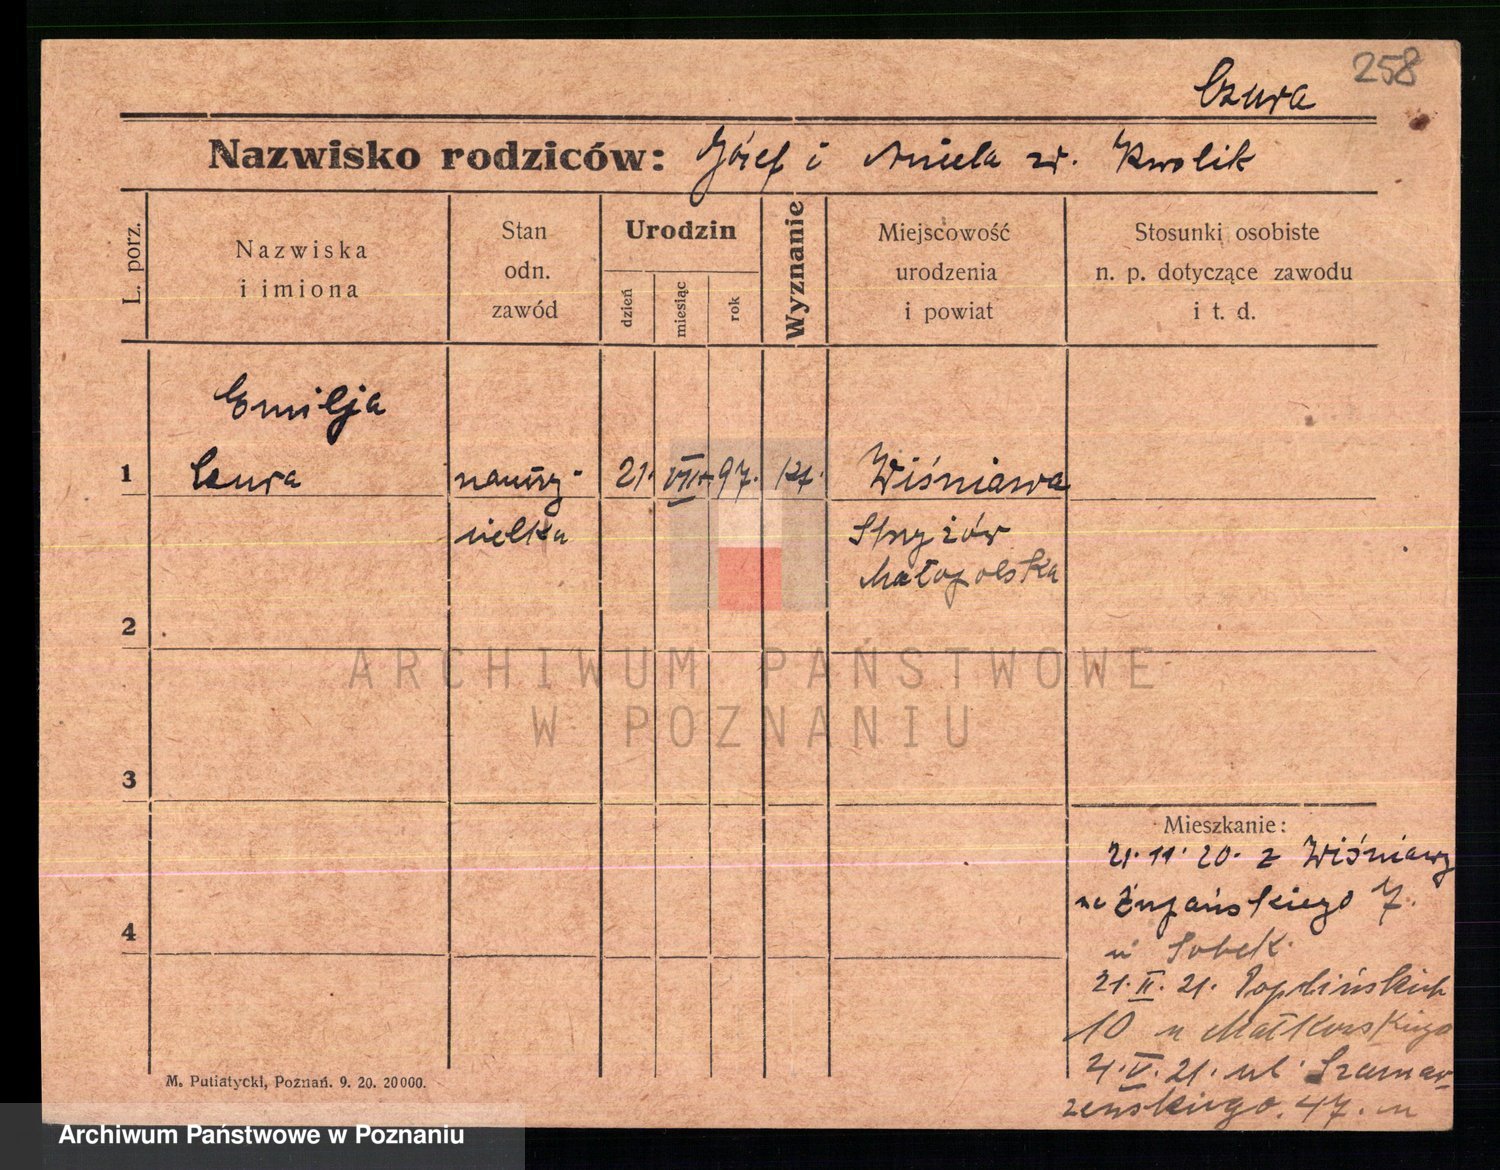 258
Czura
Nazwisko rodziców: Józef i Aniela z. Kwolik
L. porz.
Nazwiska
i imiona
Stan
odn.
zawód
Urodzin
dzień
miesiąc
rok
Wyznanie
Miejscowość
urodzenia
i powiat
Stosunki osobiste
n. p. dotyczące zawodu
i t. d.
Emilja
1 Czura nauczy- 21. VII. 97. kt. Wiśniawa
cielka Strzyżów
Małopolska
2
ARCHIWUM PAŃSTWOWE
W POZNANIU
3
Mieszkanie:
21. 11. 20. z Wiśniawy
na Żupańskiego 7.
u Sobek.
4
21. II. 21. Poplińskich
10 u Małkowskiego
4. V. 21. ul. Szamar-
zewskiego. 47. u
M. Putiatycki, Poznań. 9. 20. 20000.
Archiwum Państwowe w Poznaniu